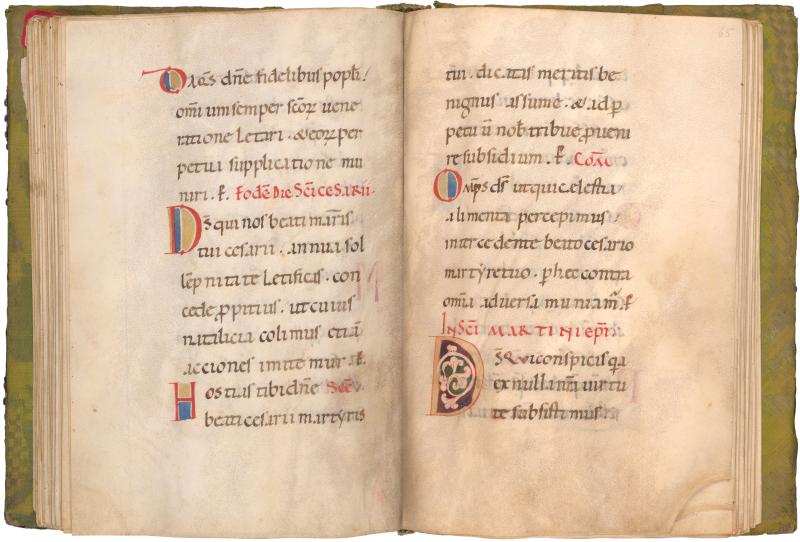 Da q̄s dn̄e fidelibus popl̄i
om̄ium semper scōꝝ uene
ratione letari . & eoꝝ per
petua supplicatione mu
niri . ꝑ. Eodē Die Sc̄i Cesarii.
Ds̄ qui nos beati mar̄ris
tui cesarii . annua sol
lēpnitate Letificas . con
cede ꝓpitius . ut cuius
natalicia colimus etiā
acciones imitemur .
Hostias tibi dn̄e Secr̄
beati cesarii martyris
65
tui . dicatis meritis be
nignus assume . & ad ꝑ
petuū nob̄ tribue ꝓueni
re subsidium . Com̄
Om̄ps ds̄ ut qui celestia
alimenta percepimus
intercedente beato cesario
martyre tuo . ꝑ hec contra
om̄ia aduersa muniam̄
In Sc̄i Martini ep̄i
Ds̄ qui conspicis qa
ex nulla nr̄a uirtu
te subsistimus